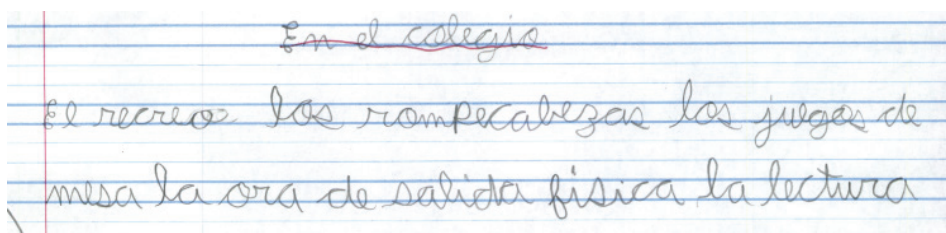 En el colegio
El recreo los rompecabezas los juegos de
mesa la ora de salida física la lectura